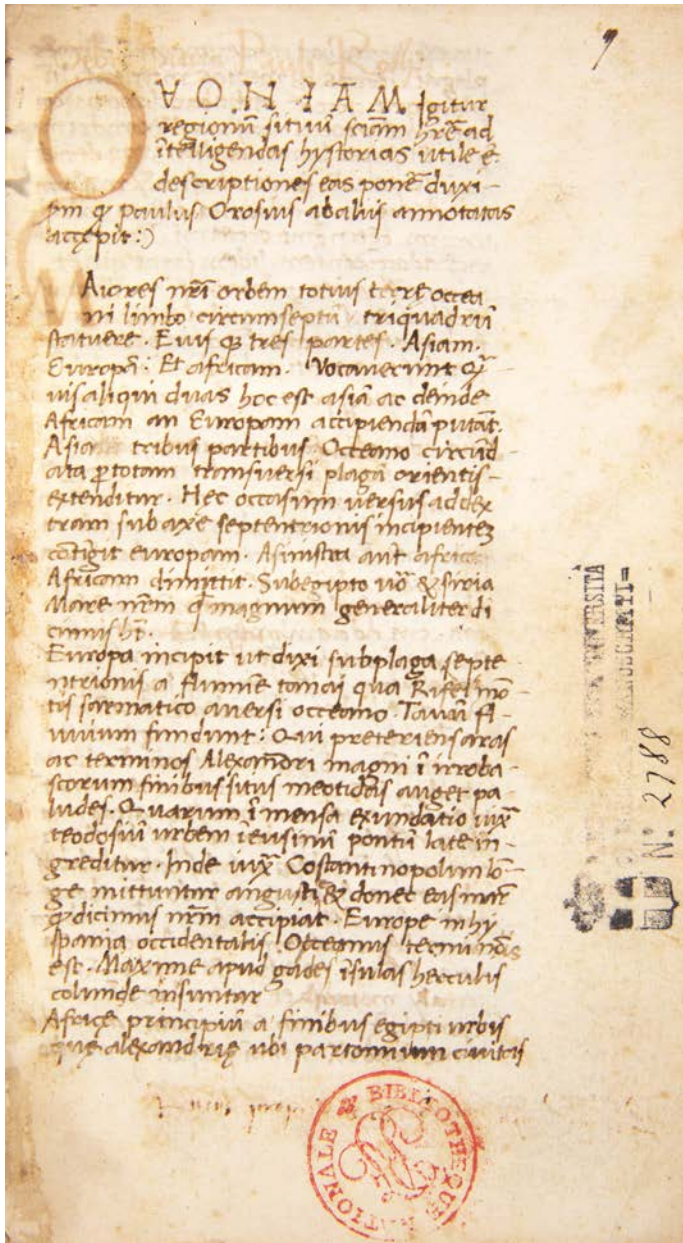 9
QVONIAM Igitur
regionū sitūū sciām hr̄e ad
ītelligendas hystorias utile ē
descriptiones eas ponē duxi-
Paulus Orosius ab aliis annotatas
accępit:)
Aiores nr̄i orbem totius terre occea
ni limbo circumseptū triquadrū
statuere. Eius q3 tres partes. Asiam.
Europā. Et africam. Vocauerunt
uis aliqui duas hoc est asiā ac deinde
Africam an Europam accipiendā putāt.
Asia tribus partibus Occeano circūd
ata ꝑ totam transuersi plagā orientis-
extenditur. Hec occasum uersus ad dex
tram sub axe septentrionis incipientez
cōtīgit europam. Asinistra aut̄ africe
Africam dimittit. Subegipto uō & siria
Mare nr̄m magnum generaliter di
cimus ht̄.
Europa incipit ut dixi sub plaga septe
ntrionis a flumīe tanai qua Rifei mō-
tis sarmatico auersi occeano. Tanaī fl-
uuium fundunt: Qui preteriens aras
ac terminos Alexandri magni ī irroba-
scorum finibus situs meotidas auget pa
ludes. Quarum īmensa exundatio iux̄
teodosiū urbem ieusinū pontū late in-
greditur. Inde iux̄ Costantinopolim lō-
ge mittuntur angusti & donec eas mar̄
dicimus nr̄m accipiat. Europe in hy
spania occidentalis Occeanus terminus
est. Maxime apud gades īsulas herculis
colunde insuntar
Africę principiū a finibus egipti urbis
quę alexandrię ubi partonium ciuitas
BIBLIOTHEQUE NATIONALE
UNIVERSITÀ
MANOSCRITTI=
N: 2788